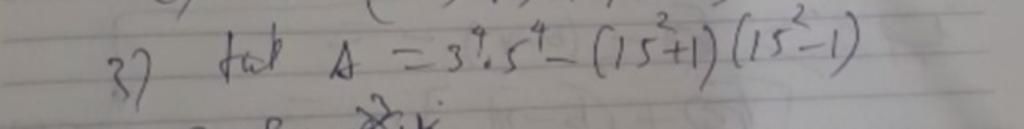 3) tính A = 3⁴.5⁴ - (15²+1)(15²-1)